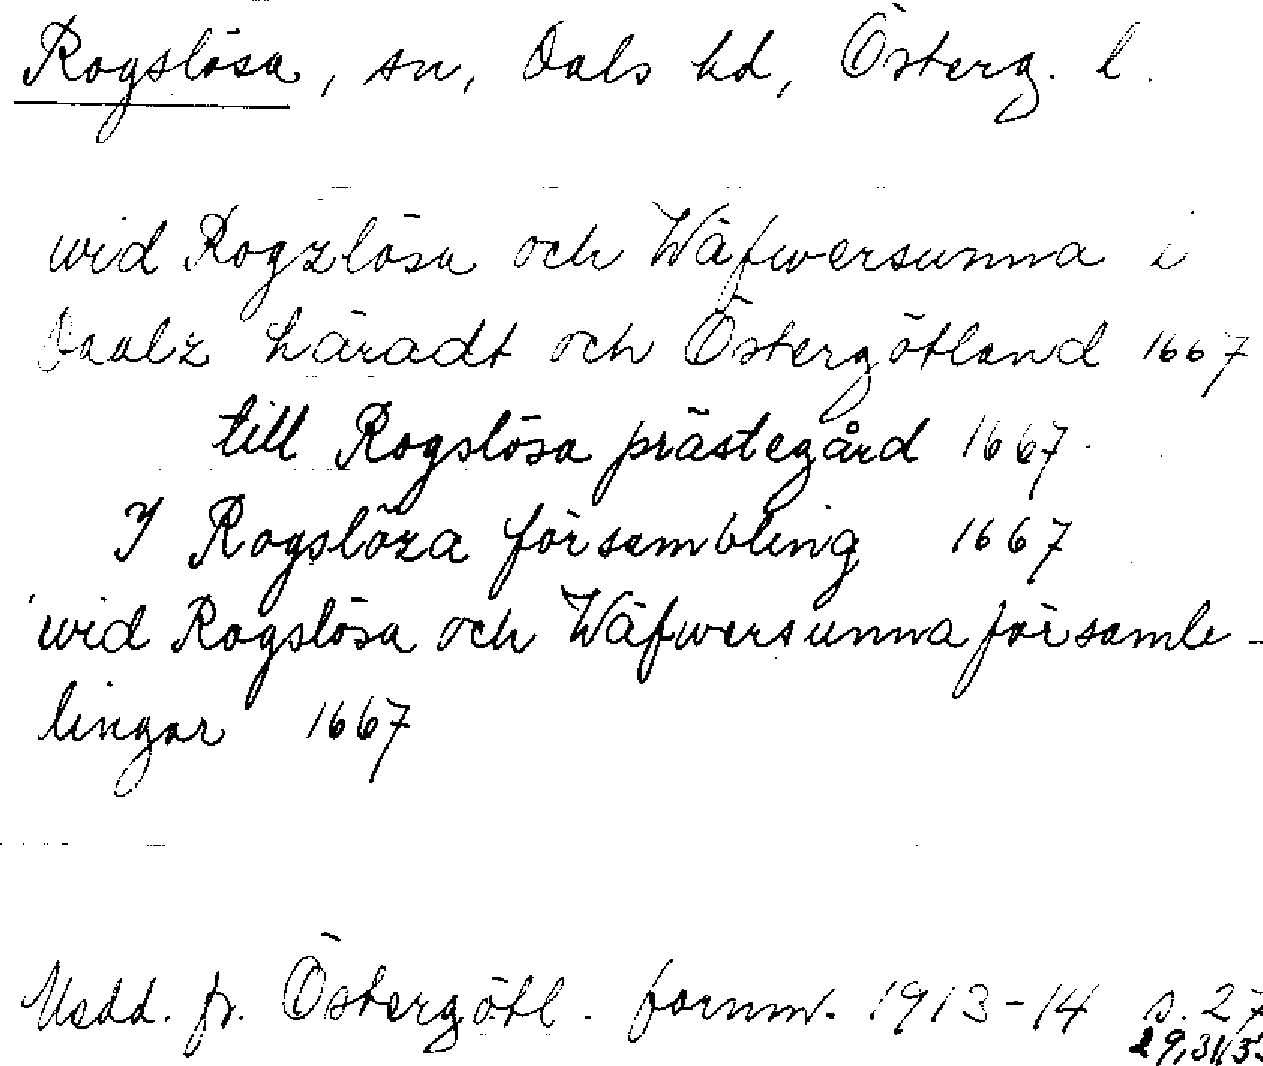 Rogslösa, sn, Dals hd, Österg. l.
wid Rogzlösa och Wäfwersunna i
Daalz häradt och Östergötland 1667
till Rogslösa prästegård 1667.
I Rogslöza försambling 1667
wid Rogslösa och Wäfwersunna församb-
lingar 1667
Medd. fr. Östergötl. fornm. 1913-14 s. 27
29, 31,